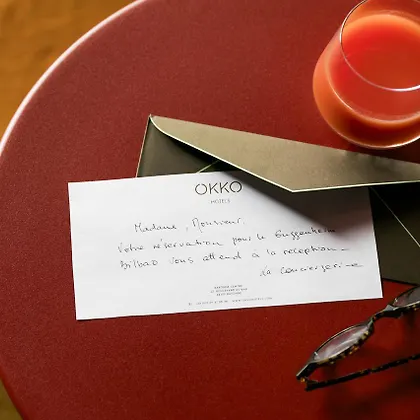 OKKO
HOTELS
Madame, Monsieur.
Votre réservation pour le Guggenheim
Bilbao vous attend à la réception
La conciergerie